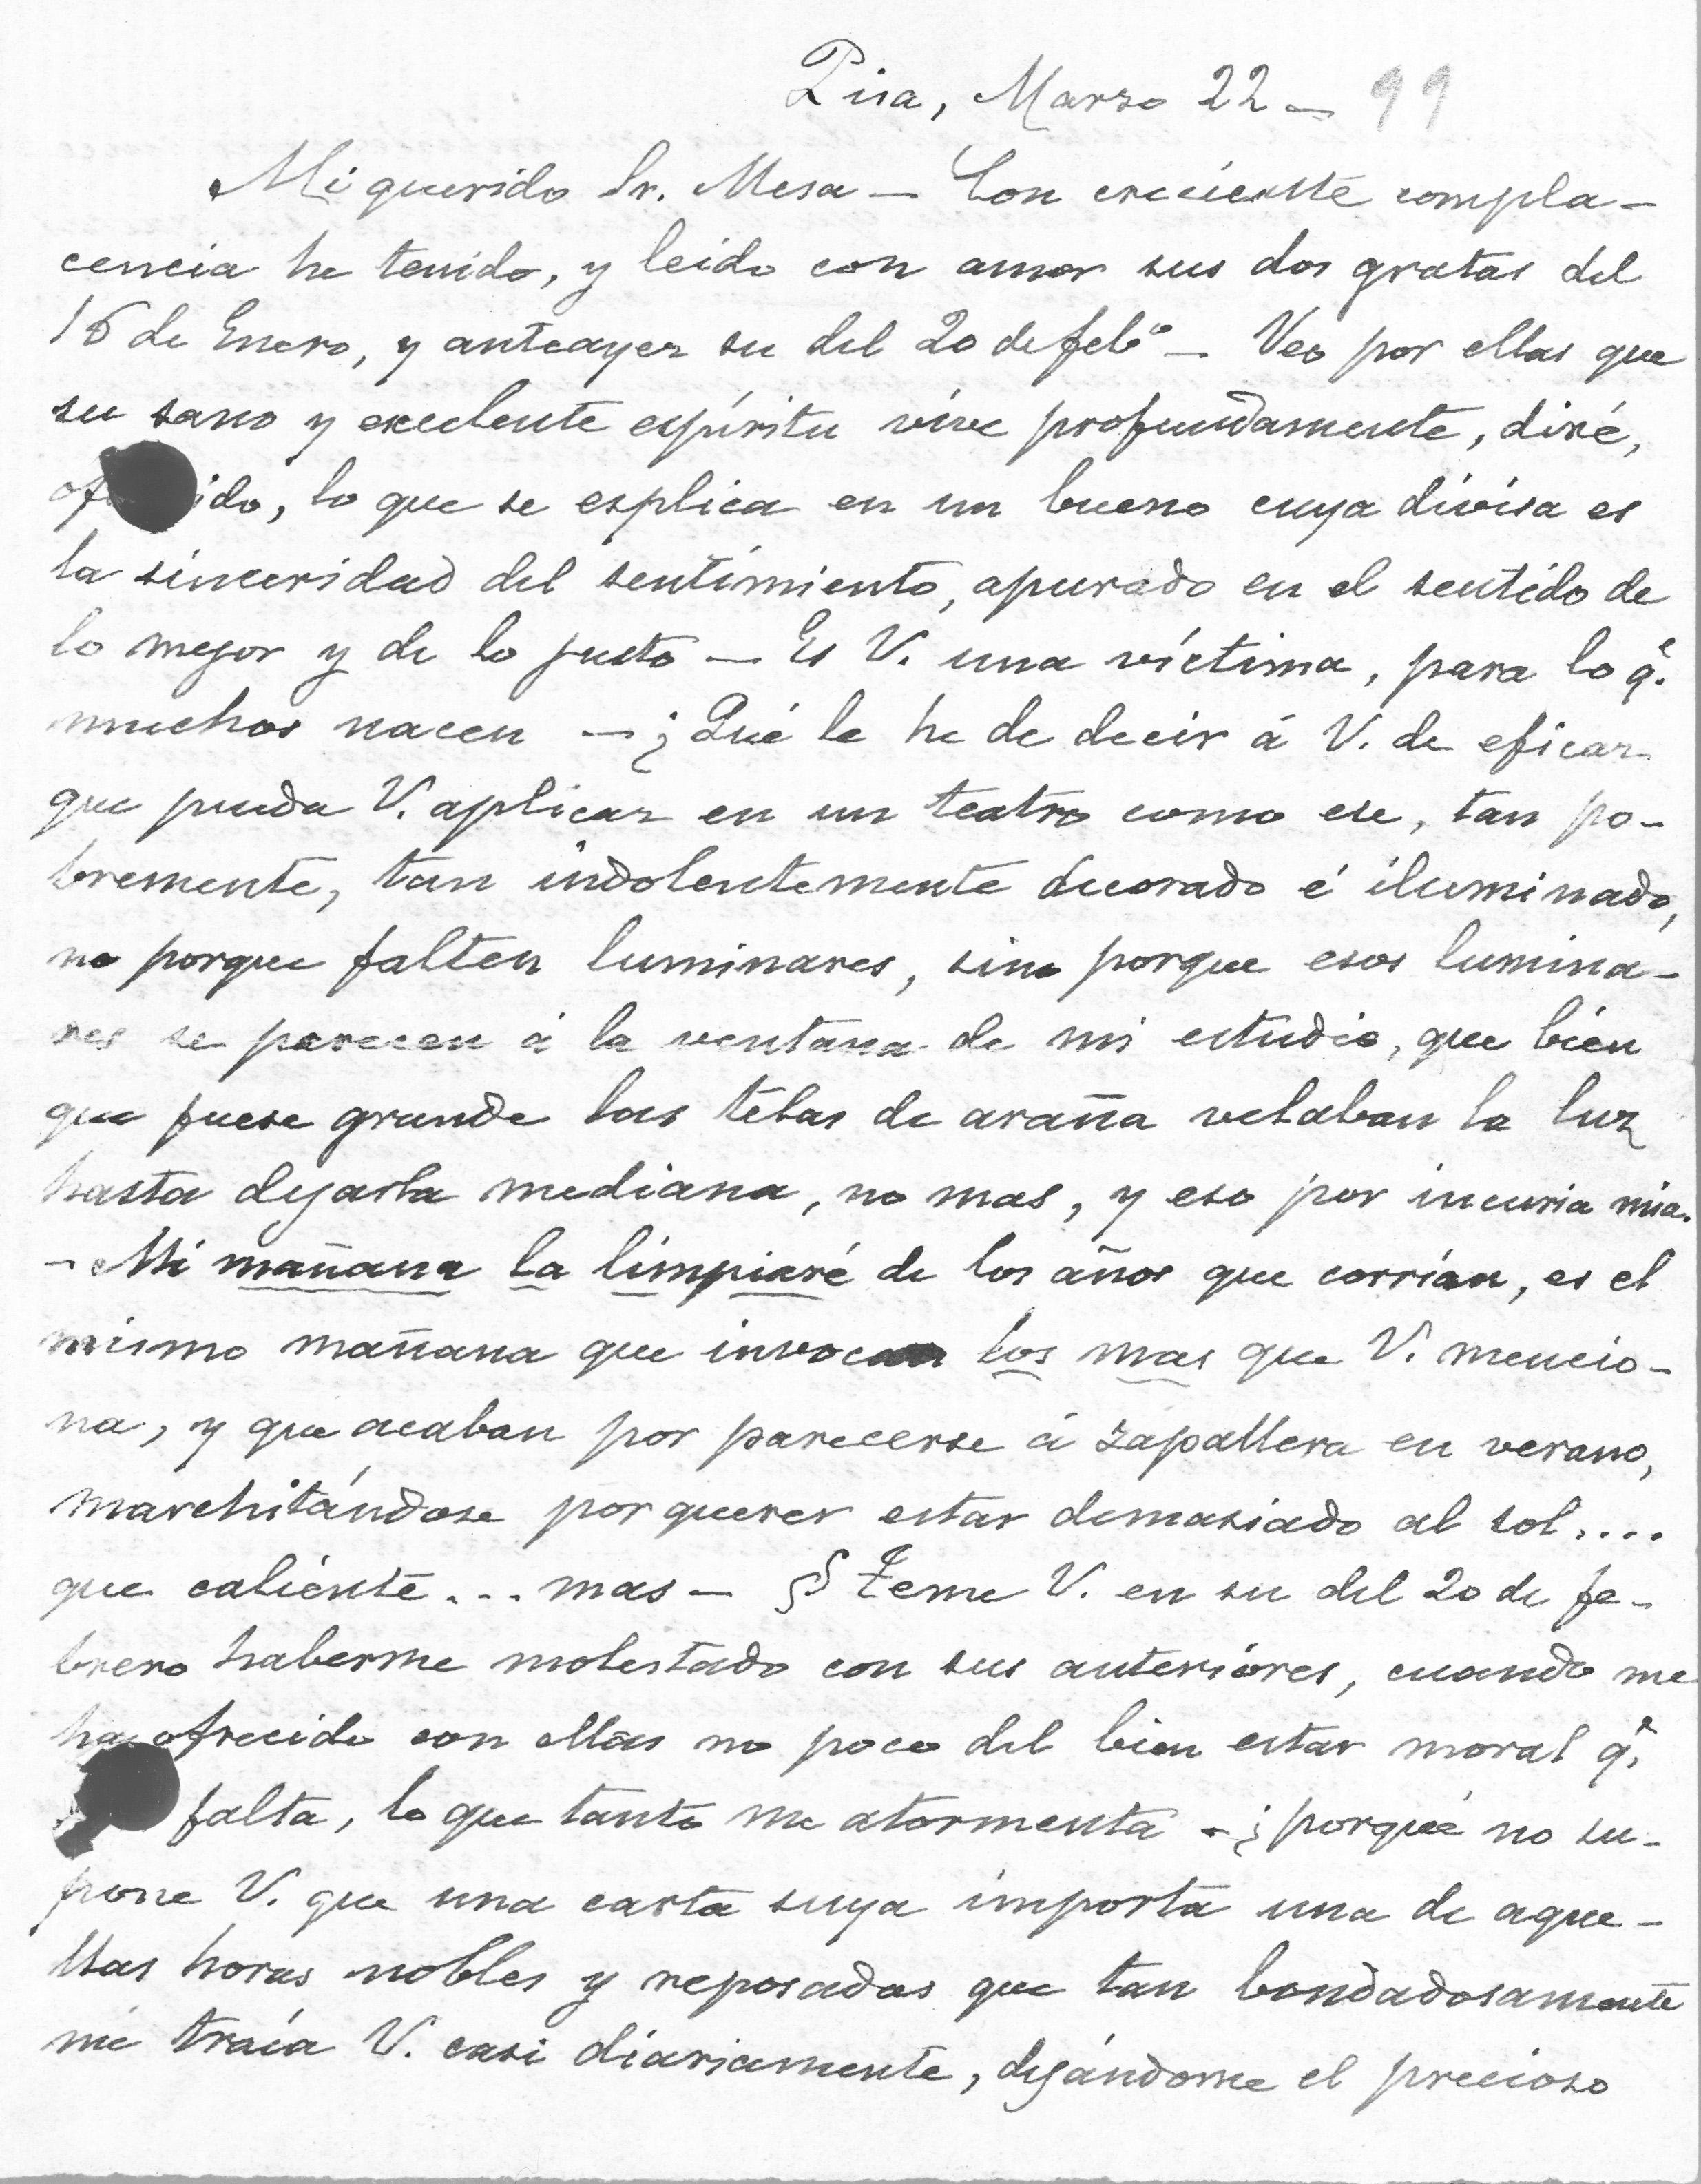 Pisa, Marzo 22 – 99
Mi querido Sr. Mesa – Con creciente compla-
cencia he tenido, y leido con amor sus dos gratas del
16 de Enero, y anteayer su del 20 de febº – Veo por ellas que
su sano y execlente espíritu vive profundamente, diré,
ido, lo que se esplica en un bueno cuya divisa es
la sinceridad del sentimiento, apurado en el sentido de
lo mejor y de lo justo – Es V. una víctima, para lo q.e
muchos nacen – ¿Qué le he de decir á V. de eficaz
que pueda V. aplicar en un teatro como ese, tan po-
bremente, tan indolentemente decorado é iluminado,
no porque falten luminares, sino porque esos lumina-
res se parecen á la ventana de mi estudio, que bien
que fuese grande las telas de araña velaban la luz
hasta dejarla mediana, no mas, y eso por incuria mia.
– Mi mañana la limpiaré de los años que corrían, es el
mismo mañana que invocan los mas que V. mencio-
na, y que acaban por parecerse á zapallera en verano,
marchitándose por querer estar demasiado al sol....
que caliente... mas – § Teme V. en su del 20 de fe-
brero haberme molestado con sus anteriores, cuando me
ha ofrecido con ellas no poco del bien estar moral q.e
falta, lo que tanto me atormenta – ¿porqué no su-
pone V. que una carta suya importa una de aque-
llas horas nobles y reposadas que tan bondadosamente
me traía V. casi diariamente, dejándome el precioso